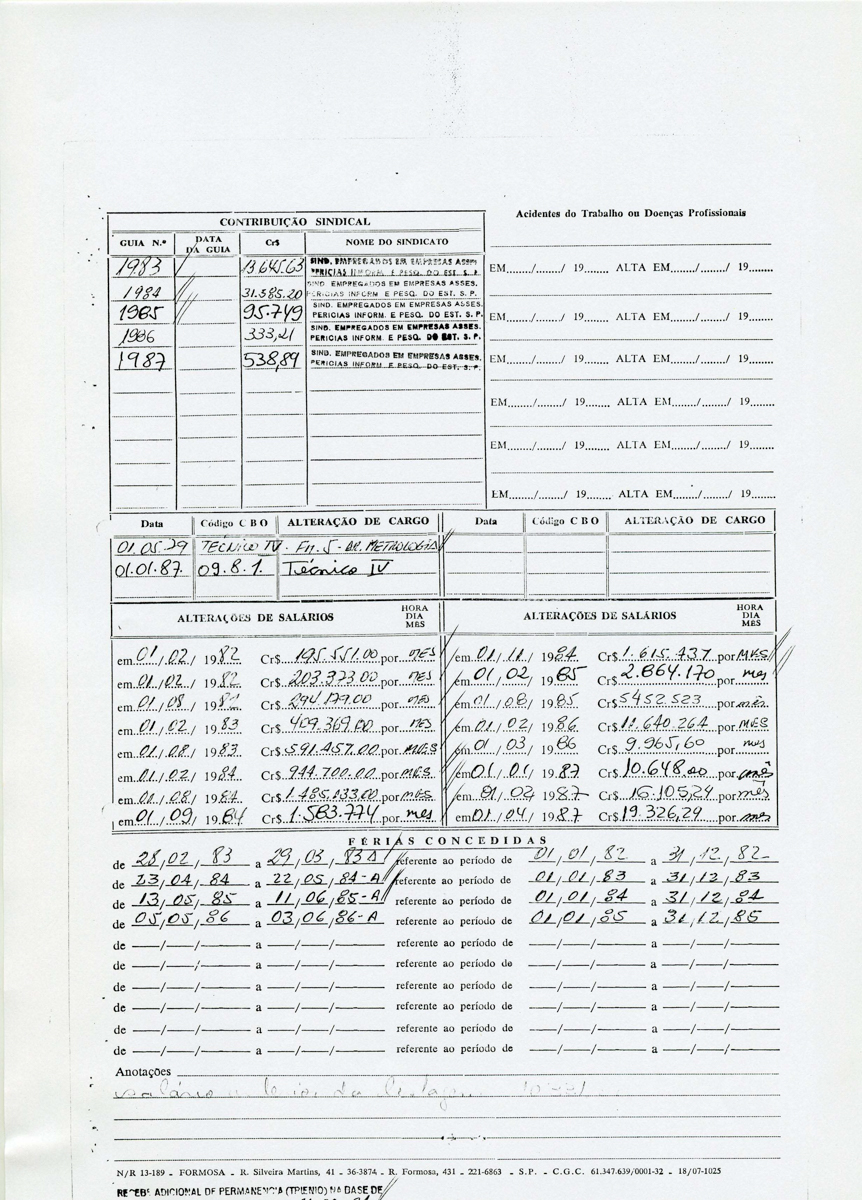 CONTRIBUIÇÃO SINDICAL
GUIA N.º DATA DA GUIA Cr$ NOME DO SINDICATO
1983 13.645.63 SIND. EMPREGADOS EM EMPRESAS ASSES
PERICIAS INFORM. E PESQ. DO EST. S. P.
1984 31.585.20 SIND. EMPREGADOS EM EMPRESAS ASSES.
PERICIAS INFORM E PESQ. DO EST. S. P.
1985 95.749 SIND. EMPREGADOS EM EMPRESAS ASSES.
PERICIAS INFORM. E PESQ. DO EST. S. P.
1986 333,21 SIND. EMPREGADOS EM EMPRESAS ASSES.
PERICIAS INFORM. E PESQ. DO EST. S. P.
1987 538,89 SIND. EMPREGADOS EM EMPRESAS ASSES.
PERICIAS INFORM. E PESQ. DO EST. S. P.
Acidentes do Trabalho ou Doenças Profissionais
EM......./......../ 19....... ALTA EM......./......../ 19........
EM......./......../ 19....... ALTA EM......./......../ 19........
EM......./......../ 19....... ALTA EM......./......../ 19........
EM......./......../ 19....... ALTA EM......./......../ 19........
EM......./......../ 19....... ALTA EM......./......../ 19........
EM......./......../ 19....... ALTA EM......./......../ 19........
Data Código C B O ALTERAÇÃO DE CARGO Data Código C B O ALTERAÇÃO DE CARGO
01.05.79 TÉCNICO IV METROLOGIA
01.01.87 09.8.1. Técnico IV
ALTERAÇÕES DE SALÁRIOS HORA DIA MES ALTERAÇÕES DE SALÁRIOS HORA DIA MES
em 01/02/1982 Cr$ 195.551.00 por MES em 01/11/1984 Cr$ 1.615.437 por MES
em 01/02/1982 Cr$ 203.973.00 por MES em 01/02/1985 Cr$ 2.864.170 por mes
em 01/08/1982 Cr$ 294.179.00 por MES em 01/08/1985 Cr$ 5452.523 por mês
em 01/02/1983 Cr$ 409.369.00 por MES em 01/02/1986 Cr$ 11.640.264 por MES
em 01/08/1983 Cr$ 591.457.00 por MES em 01/03/1986 Cr$ 9.965,60 por mes
em 01/02/1984 Cr$ 944.700.00 por MES em 01/01/1987 Cr$ 10.648,00 por mês
em 01/08/1984 Cr$ 1.485.033.00 por MES em 01/02/1987 Cr$ 16.105,24 por mês
em 01/09/1984 Cr$ 1.583.774 por mes em 01/04/1987 Cr$ 19.326,29 por mês
FÉRIAS CONCEDIDAS
de 28/02/83 a 29/03/83 A referente ao período de 01/01/82 a 31/12/82
de 23/04/84 a 22/05/84-A referente ao período de 01/01/83 a 31/12/83
de 13/05/85 a 11/06/85-A referente ao período de 01/01/84 a 31/12/84
de 05/05/86 a 03/06/86-A referente ao período de 01/01/85 a 31/12/85
de —/—/— a —/—/— referente ao período de —/—/— a —/—/—
de —/—/— a —/—/— referente ao período de —/—/— a —/—/—
de —/—/— a —/—/— referente ao período de —/—/— a —/—/—
de —/—/— a —/—/— referente ao período de —/—/— a —/—/—
de —/—/— a —/—/— referente ao período de —/—/— a —/—/—
de —/—/— a —/—/— referente ao período de —/—/— a —/—/—
Anotações
salário da
N/R 13-189 - FORMOSA - R. Silveira Martins, 41 - 36-3874 - R. Formosa, 431 - 221-6863 - S.P. - C.G.C. 61.347.639/0001-32 - 18/07-1025
RECEBE ADICIONAL DE PERMANENCIA (TRIENIO) NA BASE DE